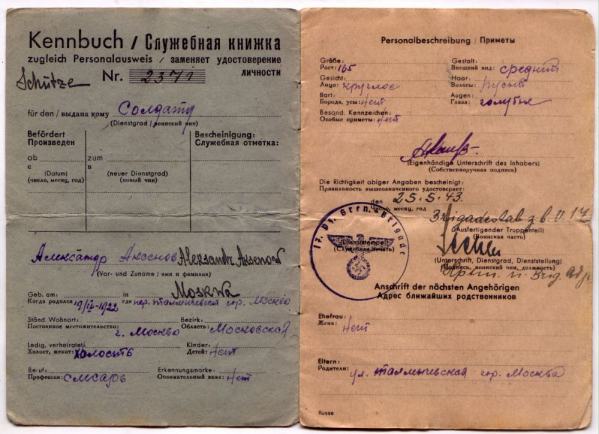 Kennbuch / Служебная книжка
zugleich Personalausweis / заменяет удостоверение
личности
Schütze
Nr. 2371
für den / выдана кому Солдату
(Dienstgrad / воинский чин)
Befördert
Произведен
Bescheinigung:
Служебная отметка:
ab
с
zum
в
(Datum)
(число, месяц, год)
(neuer Dienstgrad)
(новый чин)
Александр Аксенов Aleksandr Aksenow
(Vor- und Zuname / имя и фамилия)
Geb. am in Москва
Когда родился 19/IV-1922 где гор. Москво
Ständ. Wohnort:
Постоянное местожительство: г. Москво
Bezirk:
Область: Московская
Ledig, verheiratet:
Холост, женат: холостъ
Kinder:
Детей: Нет
Beruf:
Профессия: слесарь
Erkennungsmarke:
Опознавательный знак: Нет
Personalbeschreibung / Приметы
Größe:
Рост: 165
Gestalt:
Внешний вид: средний
Gesicht:
Лицо: круглое
Haar:
Волосы: русые
Bart:
Борода, усы: Нет
Augen:
Глаза: голубые
Besond. Kennzeichen:
Особые приметы: Нет
(Eigenhändige Unterschrift des Inhabers)
(Собственноручная подпись)
Die Richtigkeit obiger Angaben bescheinigt:
Правильность вышеозначенного удостоверяет:
den 25.5.43.
число, месяц, год
Brigadestab z.b.V. 17
(Ausfertigender Truppenteil)
(Воинская часть)
(Dienststempel)
(Служебная печать)
(Unterschrift, Dienstgrad, Dienststellung)
(Подпись, воинский чин, должность)
Anschrift der nächsten Angehörigen
Адрес ближайших родственников
Ehefrau:
Жена: Нет
Eltern:
Родители: гор. Москва
Russe